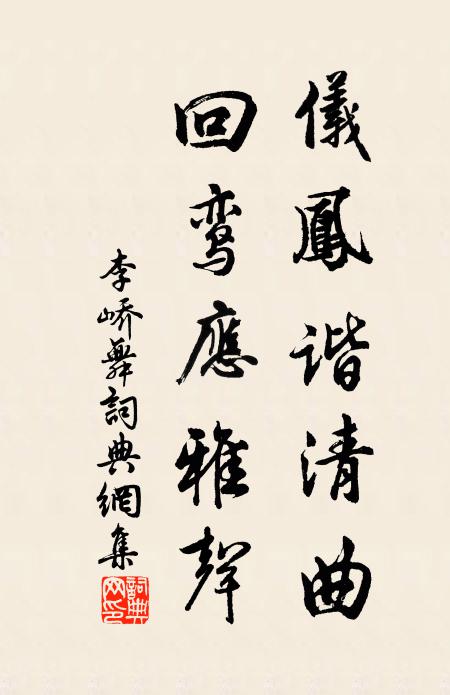 儀鳳谐清曲
回鸾應雅聲
李峤舞詞典網集
詞典网印